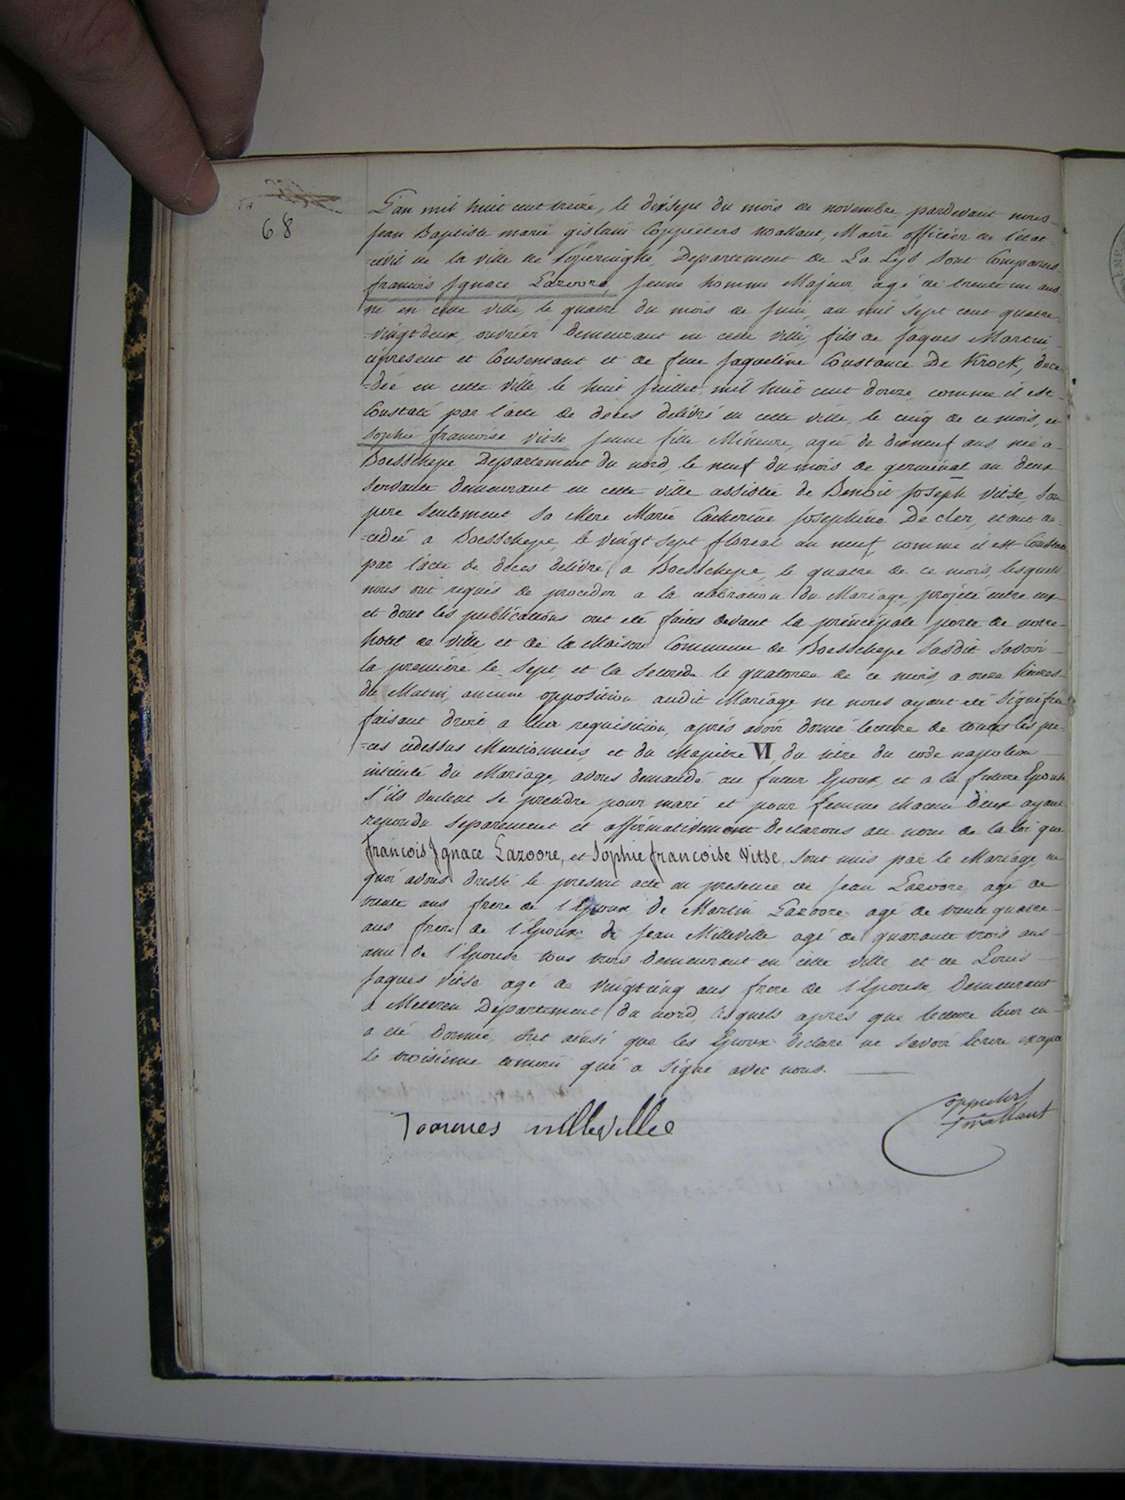 68
L'an mil huit cent treize, le dixsept du mois de novembre pardevant nous
Jean Baptiste marie gislain Coppieters Wallant, Maire officier de l'état
civil de la ville de Poperinghe, Departement de La Lys sont Comparus
francois Ignace Lazoore, jeune homme Majeur agé de trente un ans
né en cette ville, le quatre du mois de Juin, an mil sept cent quatre
vingt deux, ouvrier demeurant en cette ville, fils de Jaques Martin
ci présent et Consentant et de feue Jaqueline Constance De Krock, dece
dée en cette ville le huit Juillet mil huit cent douze comme il est
Constaté par l'acte de décès delivré en cette ville, le cinq de ce mois, et
Sophie francoise Vitse jeune fille Mineure, agée de dixneuf ans née a
Boesschepe Departement du nord, le neuf du mois de germinal an deux
servante demeurant en cette ville assistée de Benoit Joseph Vitse, son
pere seulement sa Mere Marie Catherine Josephine De cler, etant de
cedée a Boesschepe, le vingt sept floreal an neuf, comme il est Constaté
par l'acte de décès delivré a Boesschepe, le quatre de ce mois, lesquels
nous ont requis de proceder a la célébration du Mariage projeté entre eux
et dont les publications ont été faites devant la principale porte de notre
hotel de ville et de la Maison Commune de Boesschepe susdit savoir
la première le sept, et la seconde le quatorze de ce mois a onze heures
du Matin, aucune opposition audit Mariage ne nous ayant été signifiée
faisant droit a leur requisition, après avoir donné lecture de toutes les pie
ces cidessus Mentionnées, et du chapitre VI du titre du code napoleon
intitulé du Mariage, avons demandé au futur Epoux, et a la future Epouse
s'ils veulent se prendre pour mari et pour femme chacun d'eux ayant
repondu separement et affirmativement declarons au nom de la loi que
François Ignace Lazoore, et Sophie francoise Vitse, sont unis par le Mariage, de
quoi avons dressé le present acte en presence de Jean Lazoore agé de
trente ans frere de l'Epoux de Martin Lazoore agé de trente quatre
ans frere de l'Epoux de Jean Milleville agé de quarante trois ans
ami de l'Epouse tous trois demeurant en cette ville et de Louis
Jaques Vitse agé de vingt cinq ans frere de l'Epouse Demeurant
a Meteren Departement du nord, lesquels après que lecture leur en
a été donnée, ont ainsi que les Epoux declaré ne savoir Ecrire excepté
le troisieme temoin qui a signé avec nous.
Joannes milleville
Coppieters
Wallant